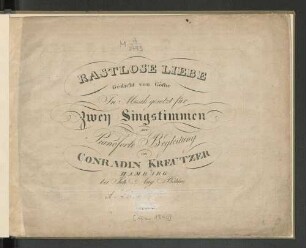 RASTLOSE LIEBE
Gedicht von Göthe
In Musik gesetzt für
Zwey Singstimmen
mit
Pianoforte Begleitung
von
CONRADIN KREUTZER
HAMBURG
bei Joh. Aug. Böhme